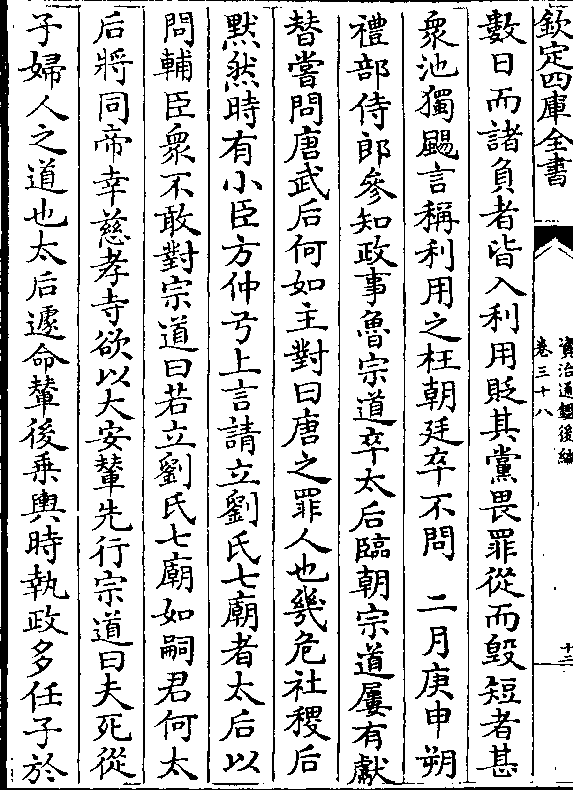 欽定四庫全書
資治通鑑後編
卷三十八
十二
數日而諸負者皆入利用貶其黨畏罪從而毀短者甚
衆池獨颺言稱利用之枉朝廷卒不問　二月庚申朔
禮部侍郎參知政事魯宗道卒太后臨朝宗道屢有獻
替嘗問唐武后何如主對曰唐之罪人也幾危社稷后
黙然時有小臣方仲弓上言請立劉氏七廟者太后以
問輔臣衆不敢對宗道曰若立劉氏七廟如嗣君何太
后將同帝幸慈孝寺欲以大安輦先行宗道曰夫死從
子婦人之道也太后遽命輦後乗輿時執政多任子於